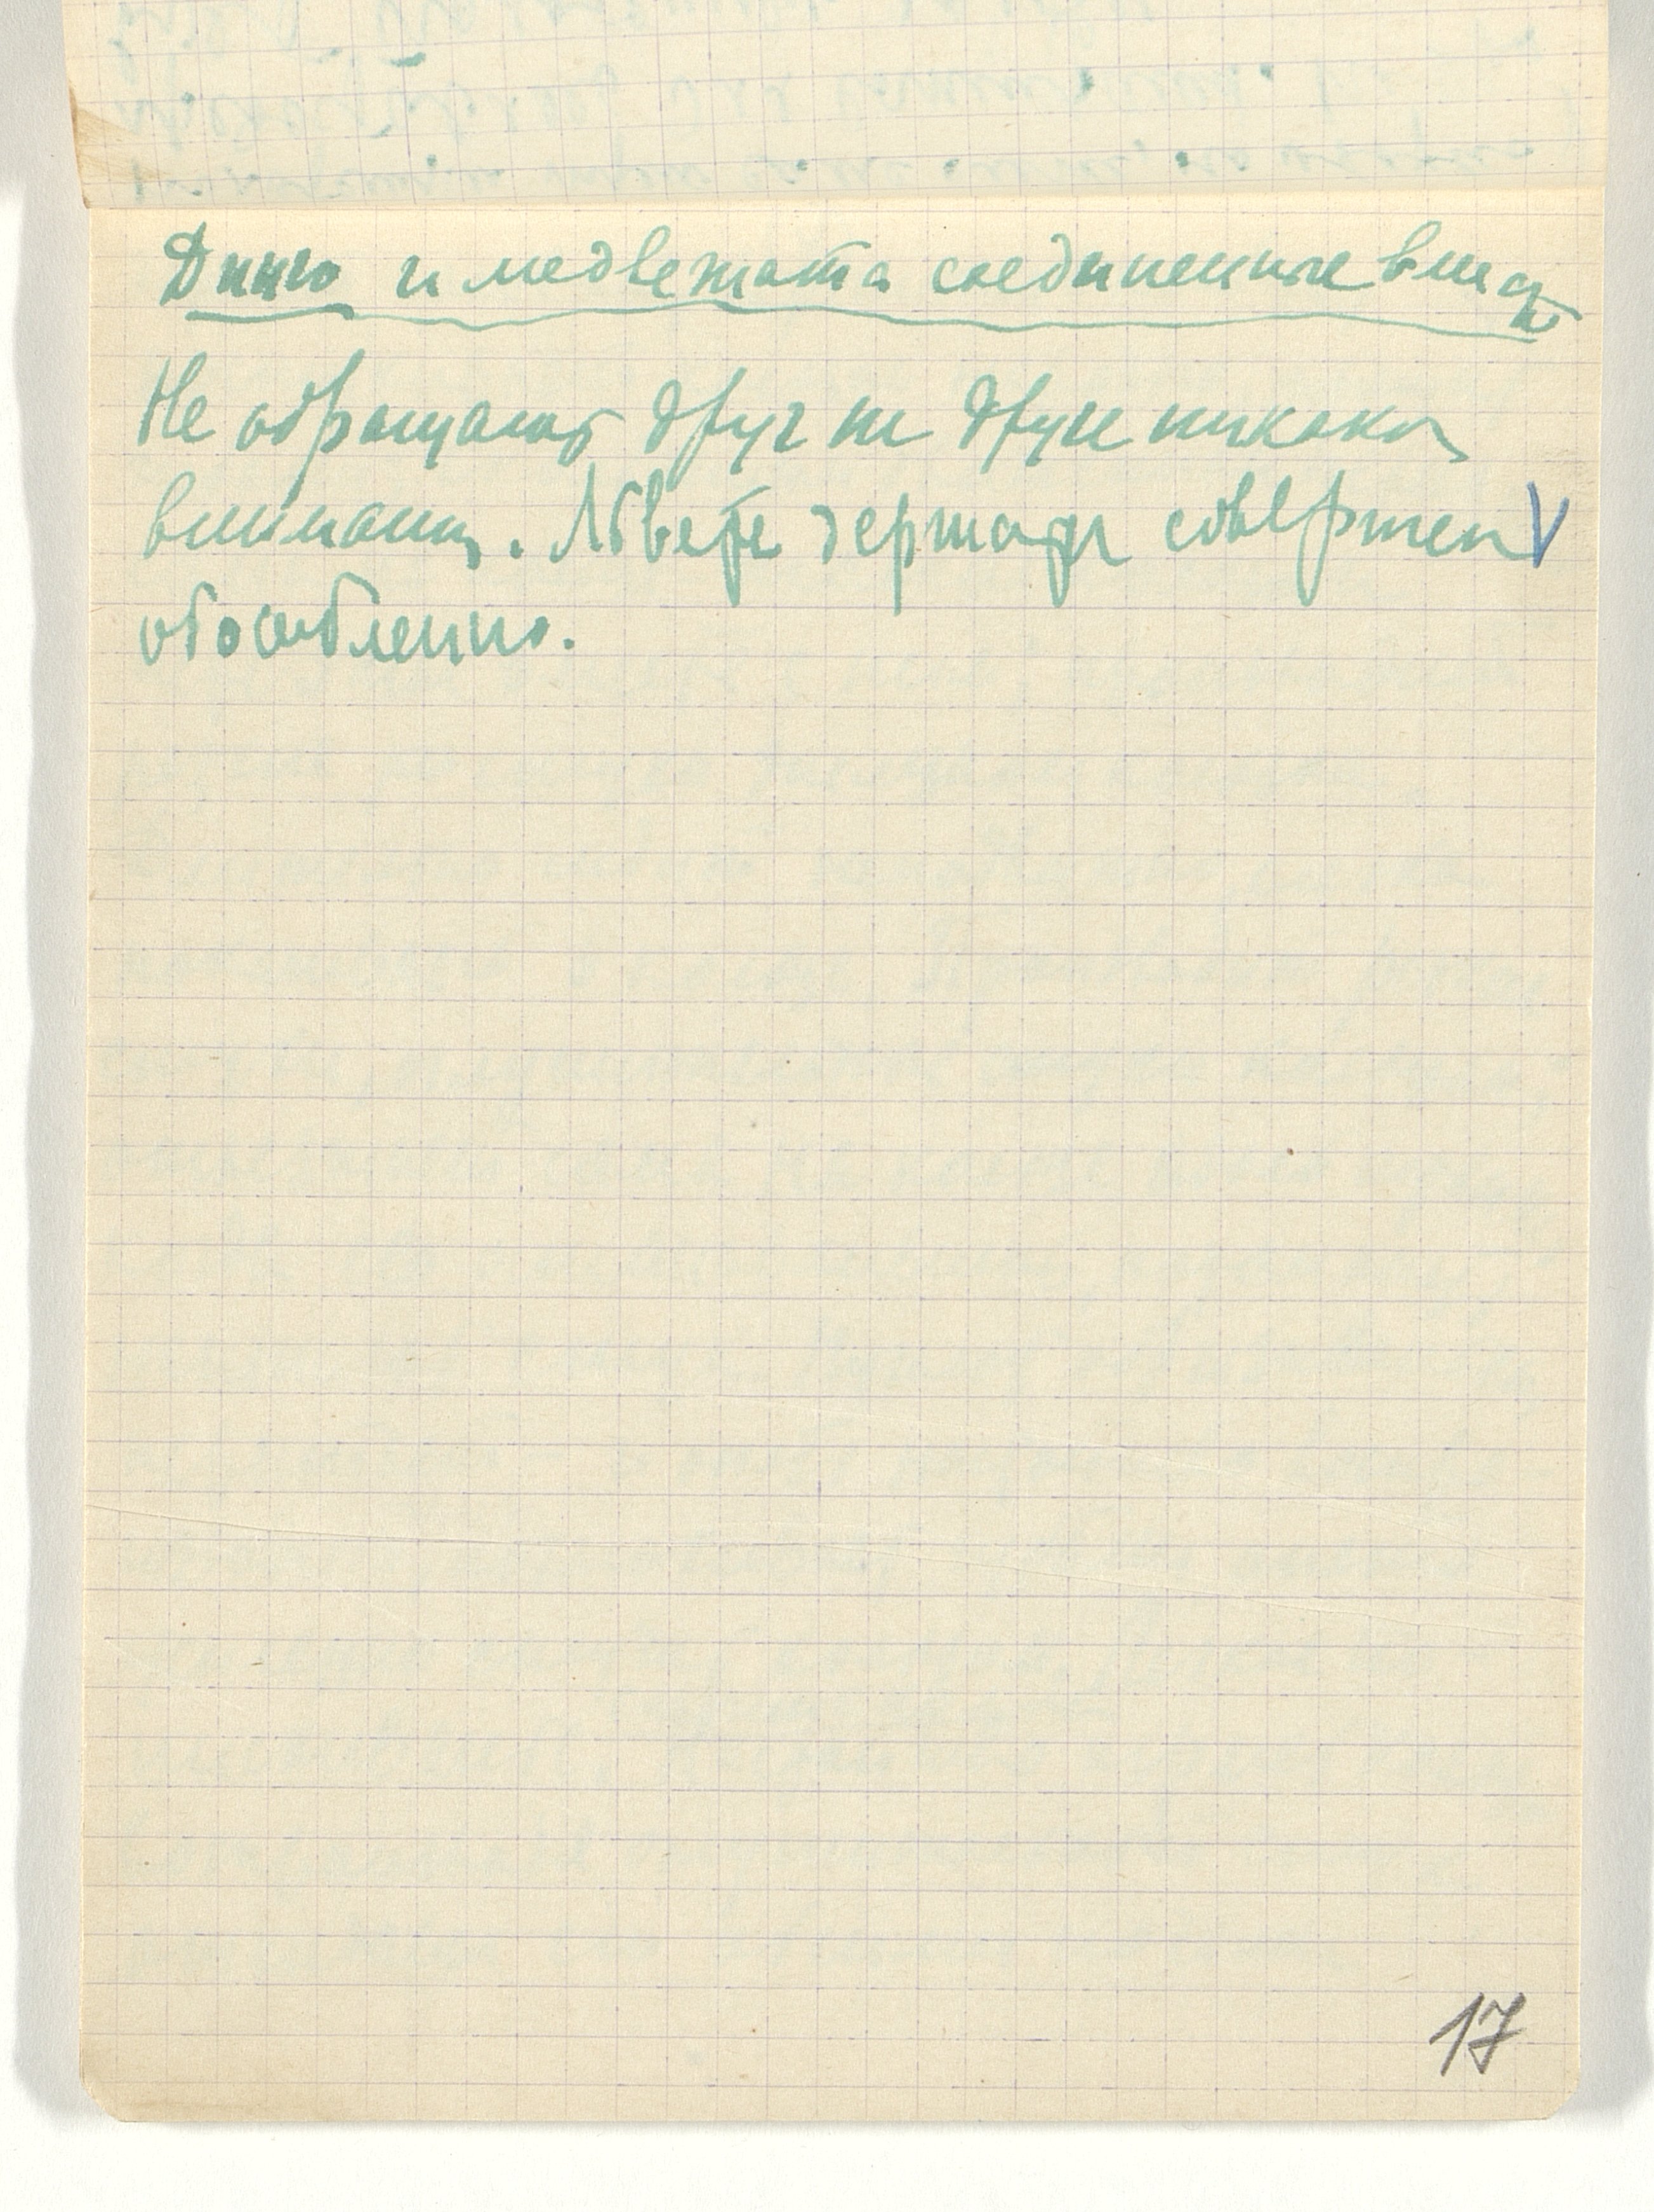 Динго и медвежата соединенные вместе
Не обращают друг на друга никакого
внимания. Обе держатся совершен V
обособленно.
17